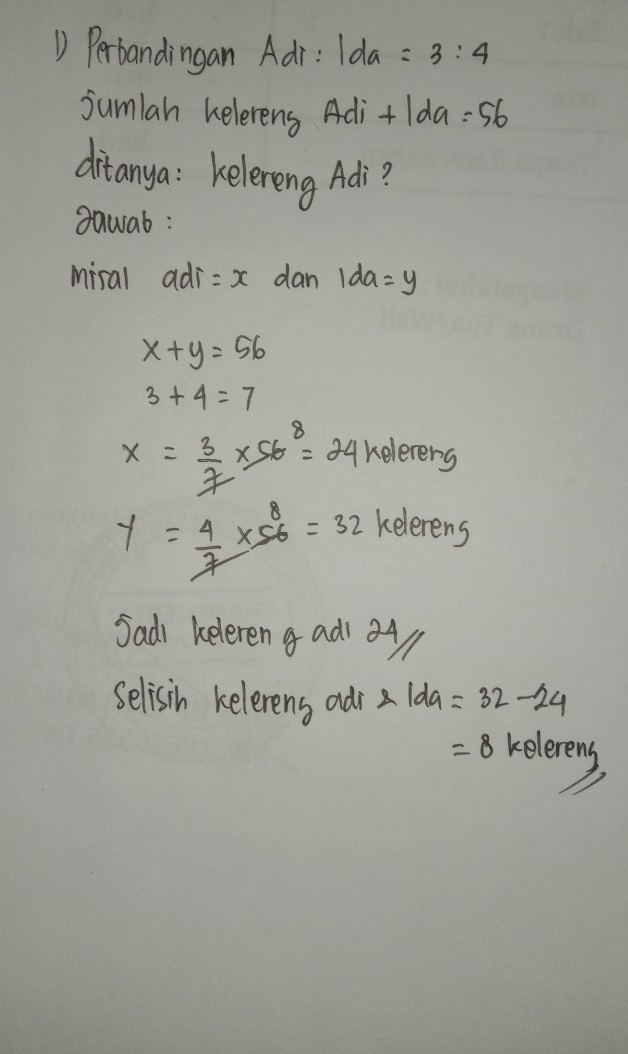 1) Perbandingan Adi : Ida = 3 : 4
Jumlah kelereng Adi + Ida = 56
ditanya : kelereng Adi ?
Jawab :
misal adi = x dan Ida = y
x + y = 56
3 + 4 = 7
x = 3/7 x 56 8 = 24 kelereng
Y = 4/7 x 56 8 = 32 kelereng
Jadi kelereng adi 24 //
Selisih kelereng adi & Ida = 32 - 24
= 8 kelereng //